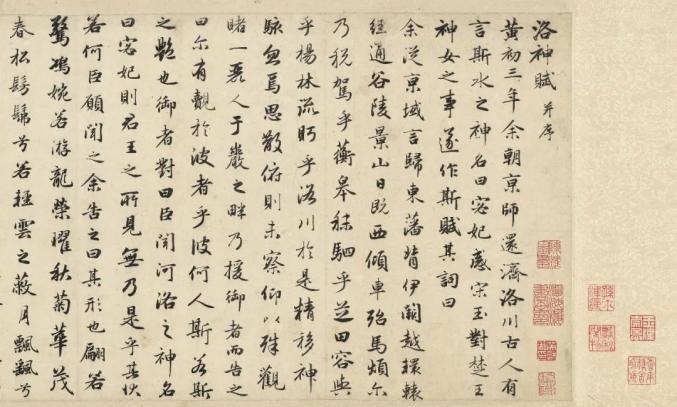 洛神賦 并序
黃初三年余朝京師還濟洛川古人有
言斯水之神名曰宓妃感宋玉對楚王
神女之事遂作斯賦其詞曰
余從京域言歸東藩背伊闕越轘轅
經通谷陵景山日既西傾車殆馬煩尓
乃稅駕乎蘅皋秣駟乎芝田容與
乎楊林流眄乎洛川於是精移神
駭忽焉思散俯則未察仰以殊觀
睹一麗人于巖之畔乃援御者而告之
曰尓有覿於彼者乎彼何人斯若斯
之豔也御者對曰臣聞河洛之神名
曰宓妃則君王之所見無乃是乎其狀
若何臣願聞之余告之曰其形也翩若
驚鴻婉若游龍榮曜秋菊華茂
春松髣髴兮若輕雲之蔽月飄飄兮